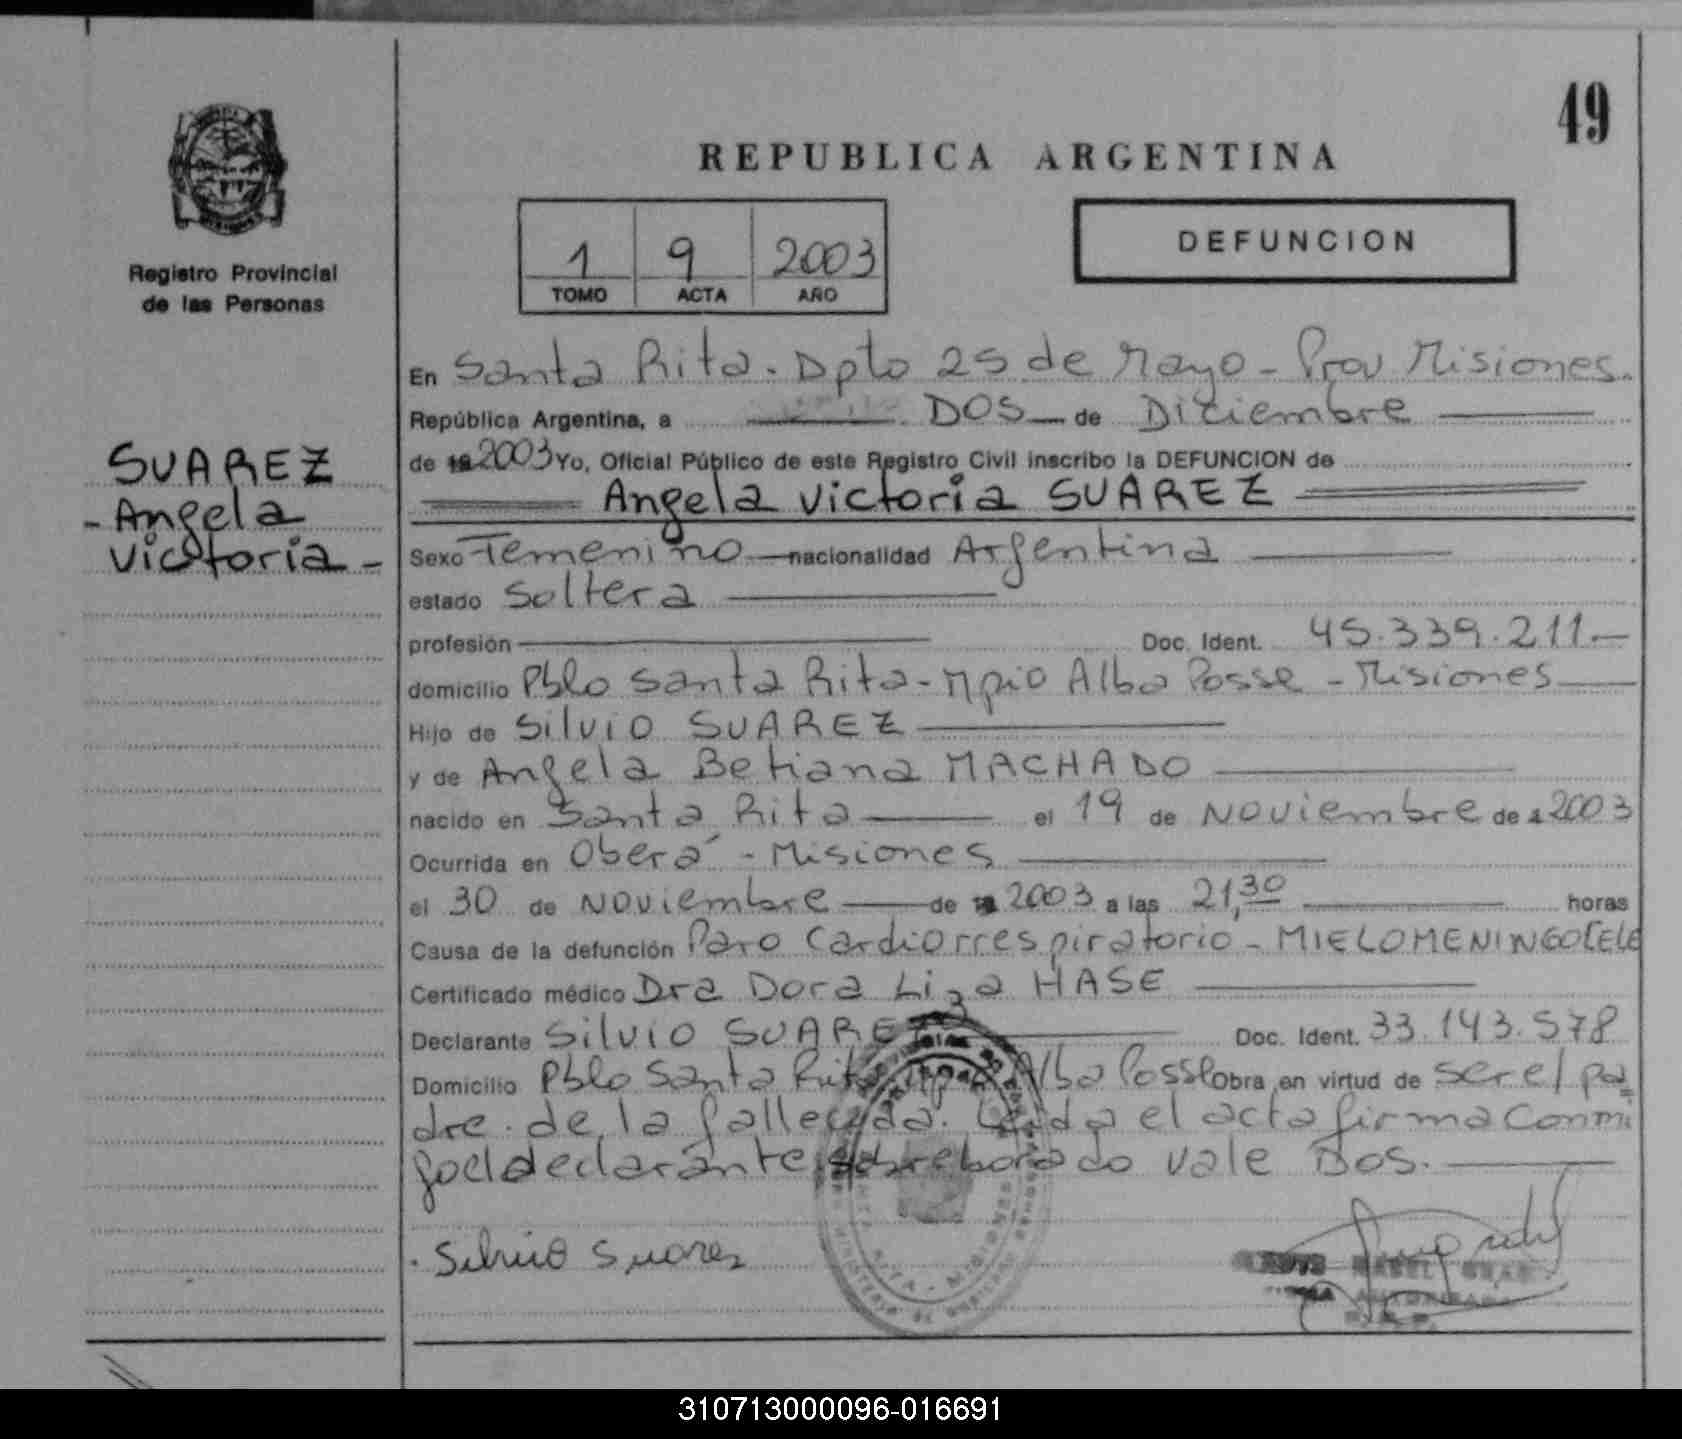 49
REPUBLICA ARGENTINA
Registro Provincial
de las Personas
1 9 2003
TOMO ACTA AÑO
DEFUNCION
SUAREZ
- Angela
Victoria -
En Santa Rita. Dpto 25 de Mayo - Prov Misiones.
República Argentina, a DOS de Diciembre
de 2003 Yo, Oficial Público de este Registro Civil inscribo la DEFUNCION de
Angela Victoria SUAREZ
Sexo Femenino nacionalidad Argentina
estado Soltera
profesión Doc. Ident. 45.339.211.
domicilio Pblo Santa Rita - Mpio Alba Posse - Misiones
Hijo de Silvio SUAREZ
y de Angela Betiana MACHADO
nacido en Santa Rita el 19 de Noviembre de 2003
Ocurrida en Oberá - Misiones
el 30 de Noviembre de 2003 a las 21,30 horas
Causa de la defunción Paro Cardiorrespiratorio - MIELOMENINGOCELE
Certificado médico Dra Dora Liza HASE
Declarante Silvio SUAREZ Doc. Ident. 33.143.578
Domicilio Pblo Santa Rita Alba Posse Obra en virtud de ser el pa=
dre de la fallecida. Leida el acta firma Conmi
go el declarante sobreborrado vale DOS.
Silvio Suarez
310713000096-016691